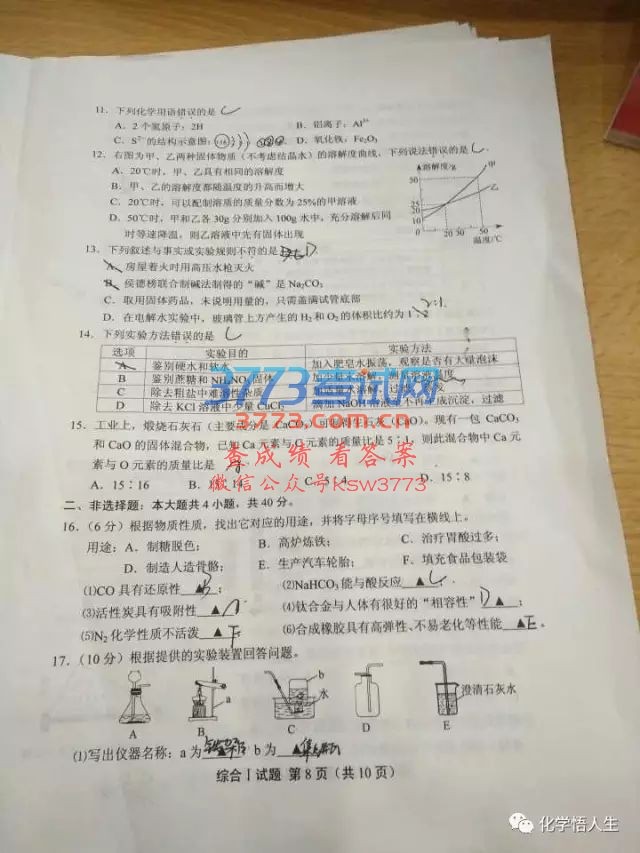 11. 下列化学用语错误的是
A. 2个氢原子：2H B. 铝离子：Al³⁺
C. S²⁻的结构示意图： D. 氧化铁：Fe₂O₃
12. 右图为甲、乙两种固体物质（不考虑结晶水）的溶解度曲线，下列说法错误的是
A. 20℃时，甲、乙具有相同的溶解度
B. 甲、乙的溶解度都随温度的升高而增大
C. 20℃时，可以配制溶质的质量分数为25%的甲溶液
D. 50℃时，甲和乙各30g分别加入100g水中，充分溶解后同
时等速降温，则乙溶液中先有固体出现
溶解度/g
甲
乙
50
25
20
0 20 30 50
温度/℃
13. 下列叙述与事实或实验规则不符的是 D
A. 房屋着火时用高压水枪灭火
B. 侯德榜联合制碱法制得的“碱”是Na₂CO₃
C. 取用固体药品，未说明用量的，只需盖满试管底部
D. 在电解水实验中，玻璃管上方产生的H₂和O₂的体积比约为1:2
2:1
14. 下列实验方法错误的是
选项 实验目的 实验方法
A 鉴别硬水和软水 加入肥皂水振荡，观察是否有大量泡沫
B 鉴别蔗糖和NH₄NO₃固体
C 除去粗盐中难溶性杂质
D 除去KCl溶液中少量CaCl₂ 滴加NaOH溶液至不再生成沉淀，过滤
15. 工业上，煅烧石灰石（主要成分是CaCO₃）可制得生石灰（CaO）。现有一包CaCO₃
和CaO的固体混合物，已知Ca元素与C元素的质量比是5：1，则此混合物中Ca元
素与O元素的质量比是
A. 15：16 C. 5：4 D. 15：8
3773考试网
3773.com.cn
查成绩 看答案
微信公众号ksw3773
二、非选择题：本大题共4小题，共40分。
16.（6分）根据物质性质，找出它对应的用途，并将字母序号填写在横线上。
用途：A. 制糖脱色； B. 高炉炼铁； C. 治疗胃酸过多；
D. 制造人造骨骼； E. 生产汽车轮胎； F. 填充食品包装袋
(1)CO具有还原性 ▲ B ； (2)NaHCO₃能与酸反应 ▲ C ；
(3)活性炭具有吸附性 ▲ A ； (4)钛合金与人体有很好的“相容性” D ▲ ；
(5)N₂化学性质不活泼 ▲ F ； (6)合成橡胶具有高弹性、不易老化等性能 ▲ E 。
17.（10分）根据提供的实验装置回答问题。
a b 水 澄清石灰水
A B C D E
(1)写出仪器名称：a为 ▲ b为 ▲
综合Ⅰ试题 第8页（共10页）
化学悟人生